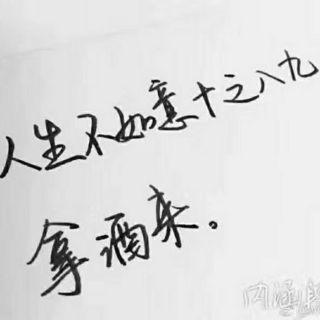 人生不如意十之八九
拿酒来。
内涵段